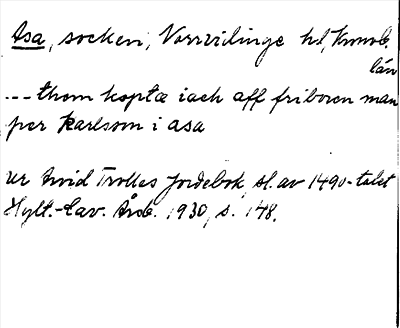 Asa, socken, Norrvidinge hd, Kronob.
län
--- them køptæ iach aff friboren man
per karlsson i asa
ur Arvid Trolles Jordebok, sl. av 1490-talet
Hylt.-Cav. Årsb. 1930, s. 148.